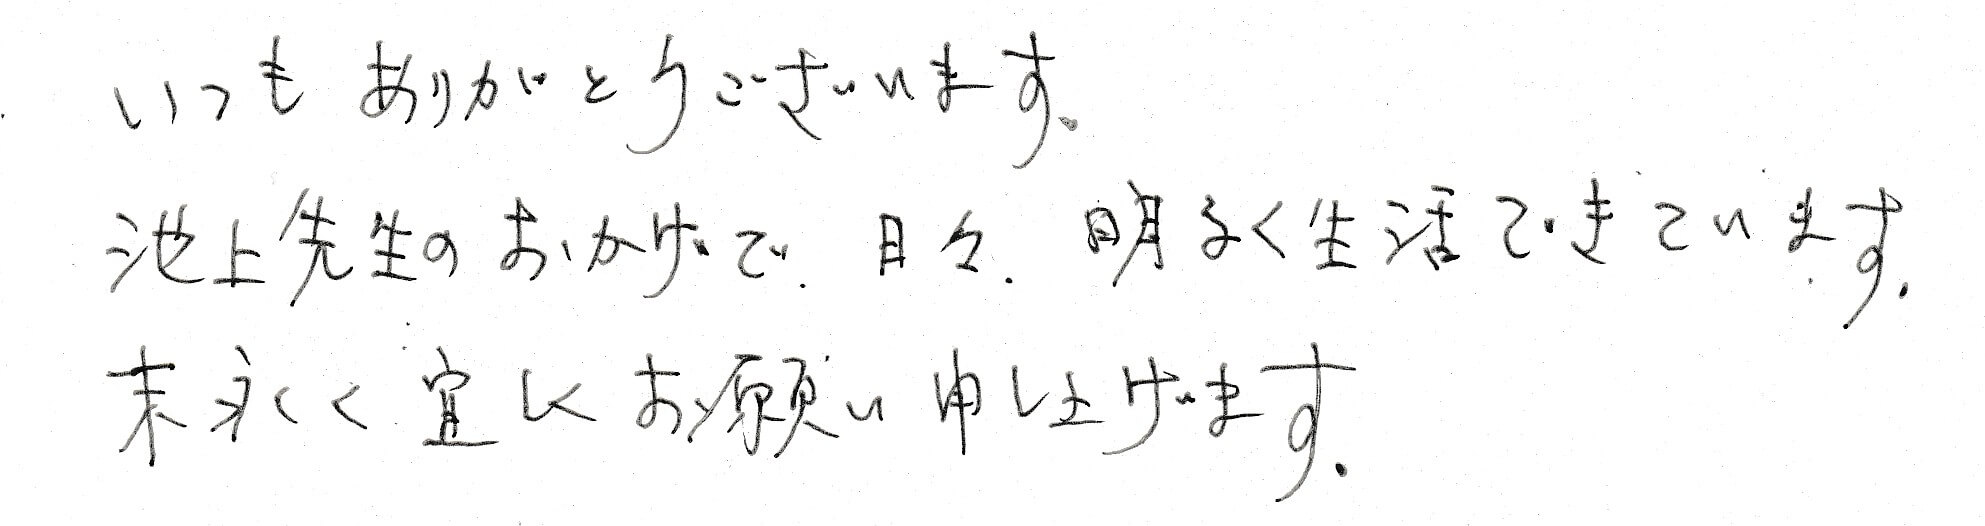 いつもありがとうございます。
池上先生のおかげで、日々、明るく生活できています。
末永く宜しくお願い申し上げます。